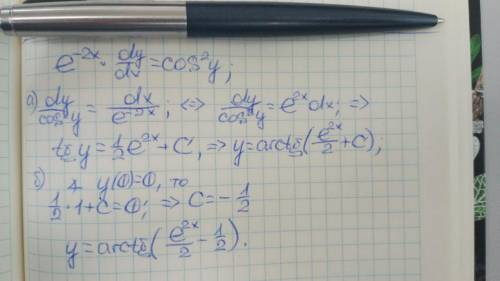 e^{-2x} · dy/dx = cos²y;
а) dy/cos²y = dx/e^{-2x}; <=> dy/cos²y = e^{2x}dx; =>
tg y = 1/2 e^{2x} + C, => y = arctg(e^{2x}/2 + C);
б) y(0)=0, то
1/2 · 1 + C = 0; => C = -1/2
y = arctg(e^{2x}/2 - 1/2).